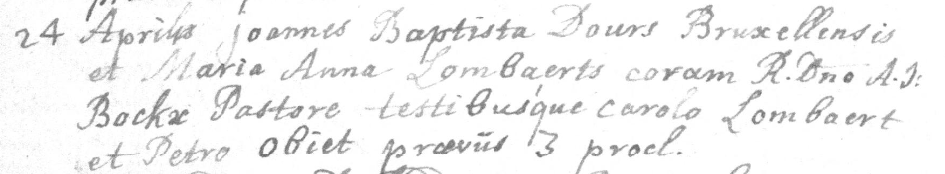 24 Aprilis joannes Baptista Dours Bruxellensis
et Maria Anna Lombaerts coram R. Dno A. J:
Bockx Pastore testibusque carolo Lombaert
et Petro Obiet prævüs 3 procl.